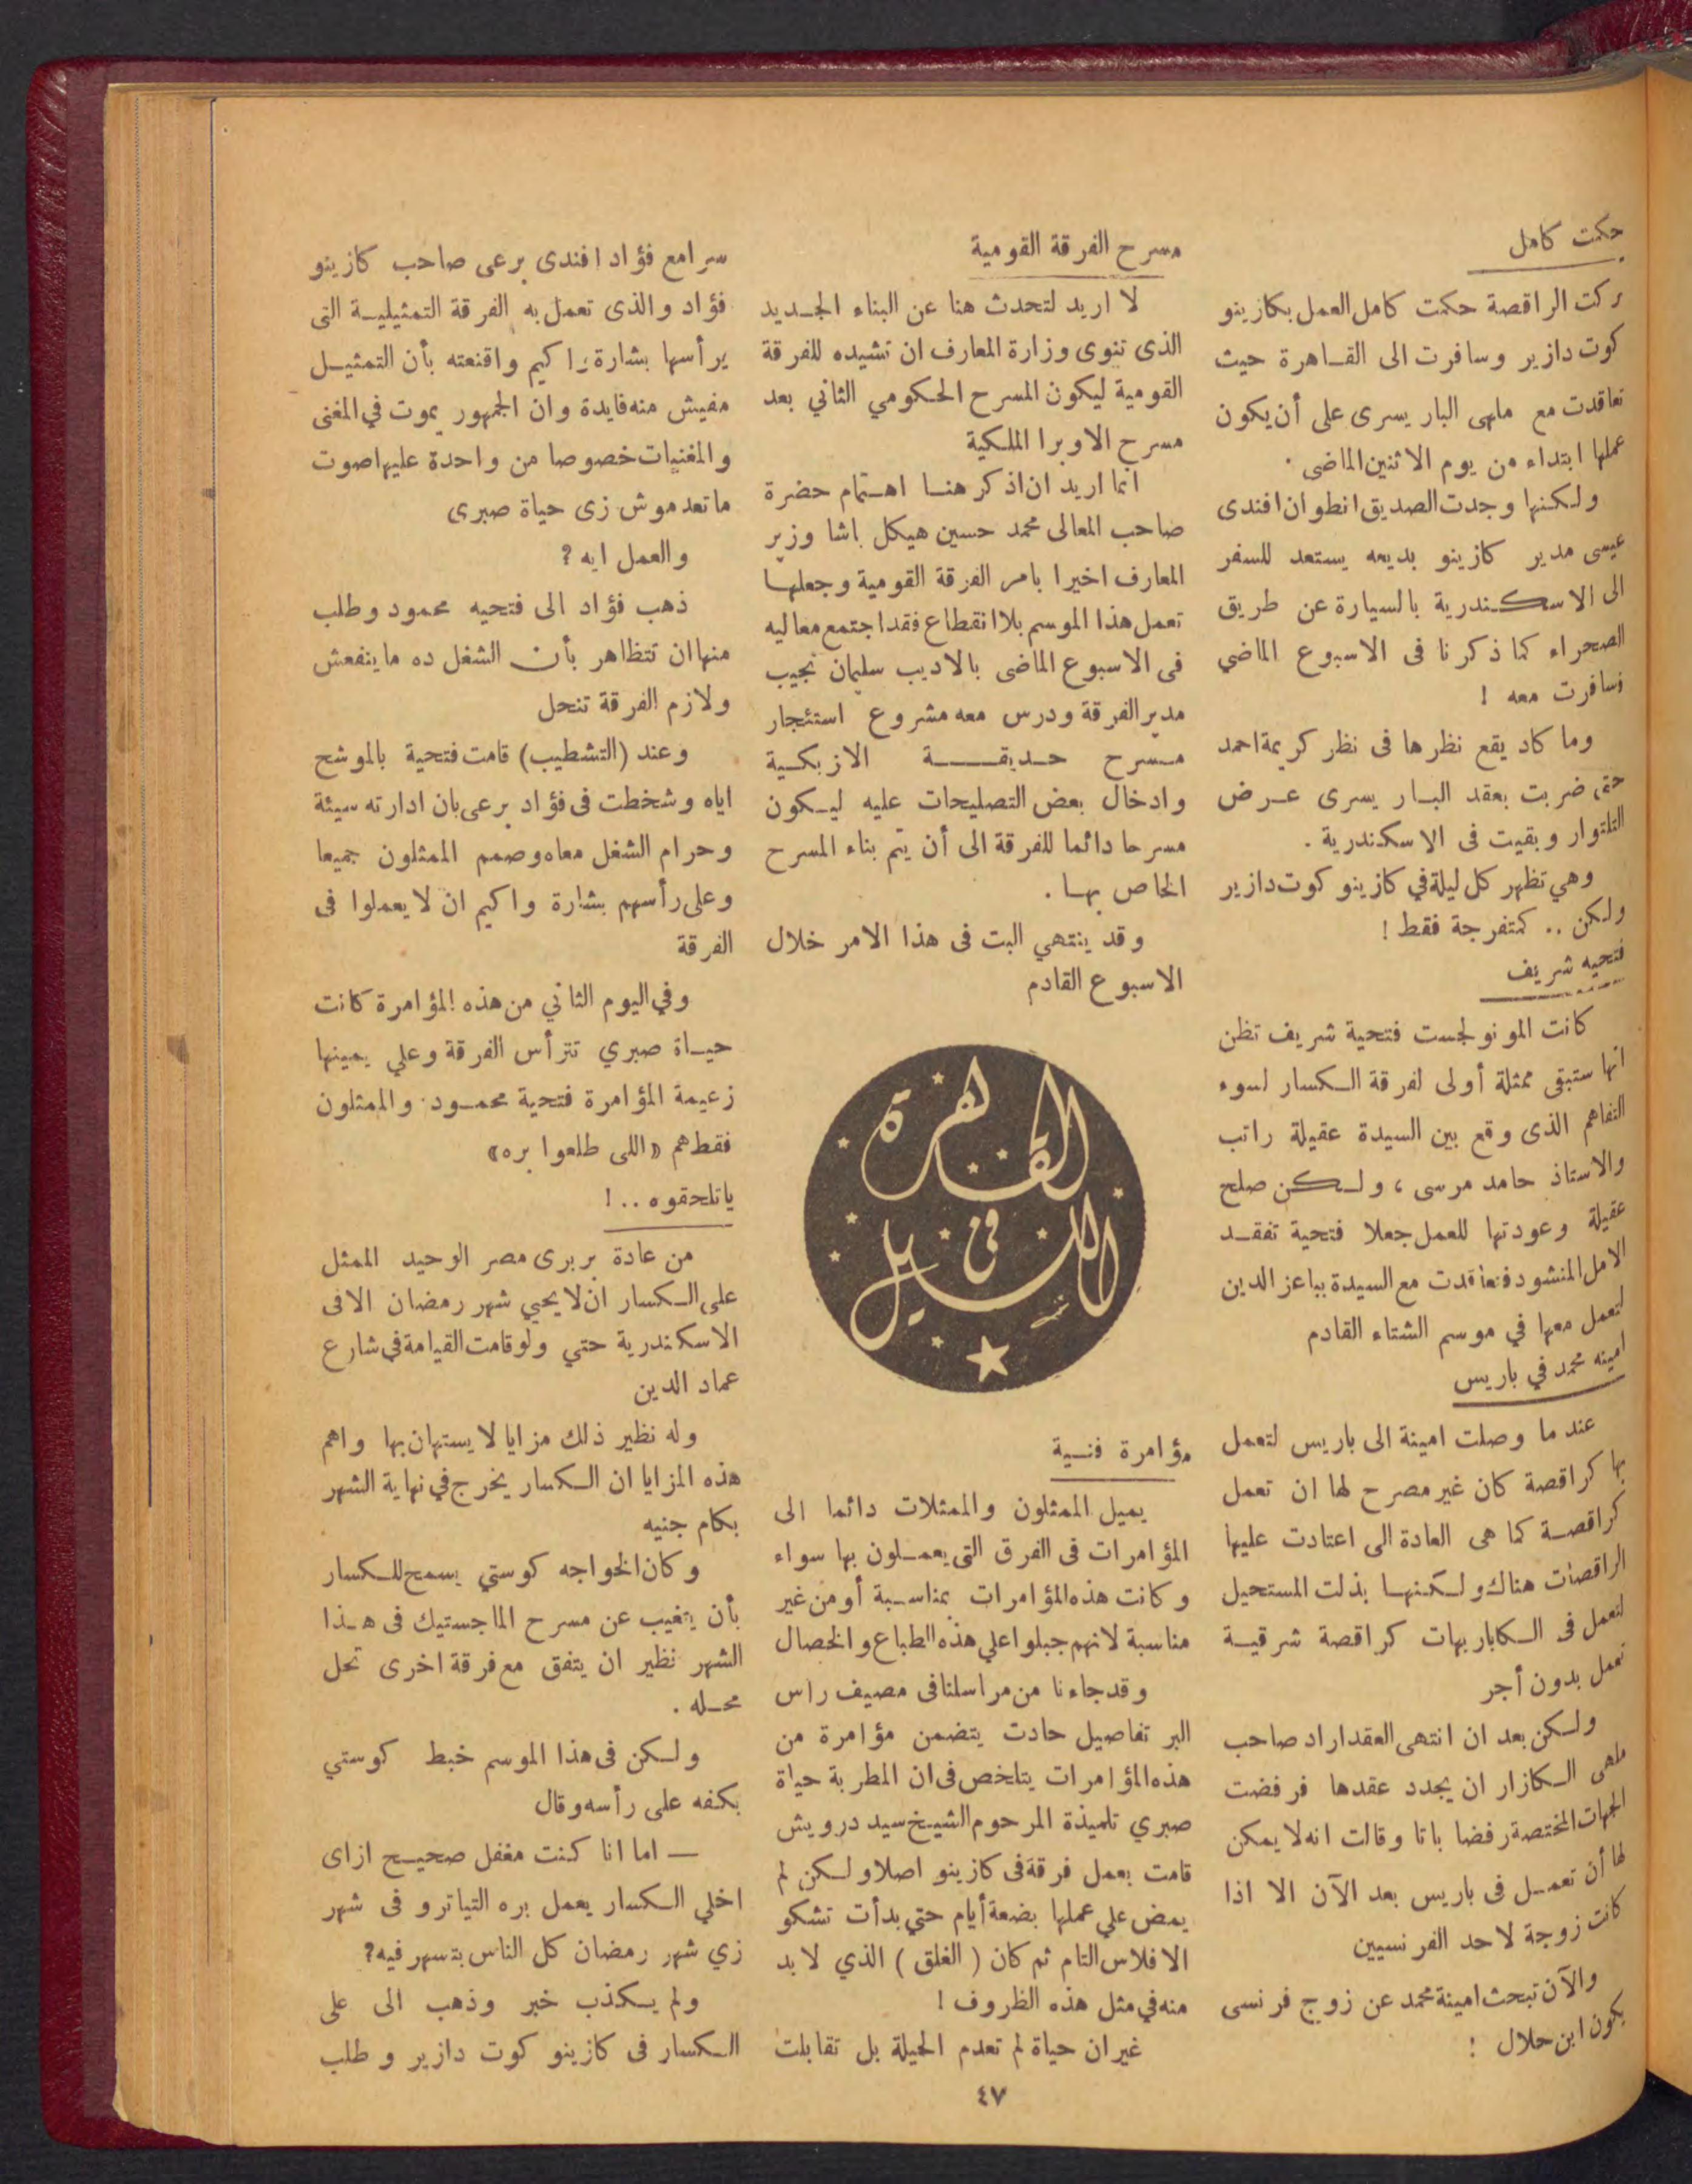 حكمت كامل
تركت الراقصة حكمت كامل العمل بكازينو
كوت دازير وسافرت الى القاهرة حيث
تعاقدت مع ملهى البار يسرى على أن يكون
عملها ابتداء من يوم الاثنين الماضى .
ولكنها وجدت الصديق انطوان افندى
عيسى مدير كازينو بديعه يستعد للسفر
الى الاسكندرية بالسيارة عن طريق
الصحراء كما ذكرنا فى الاسبوع الماضي
فسافرت معه !
وما كاد يقع نظرها فى نظر كريمة احمد
حتى ضربت بعقد البار يسرى عرض
التلتوار وبقيت فى الاسكندرية .
وهي تظهر كل ليلة في كازينو كوت دازير
ولكن .. كمتفرجة فقط !
فتحيه شريف
كانت المونولجست فتحية شريف تظن
انها ستبقى ممثلة أولى لفرقة الكسار لسوء
التفاهم الذى وقع بين السيدة عقيلة راتب
والاستاذ حامد مرسى ، ولكن صلح
عقيلة وعودتها للعمل جعلا فتحية تفقد
الامل المنشود فتعاقدت مع السيدة ببا عز الدين
لتعمل معها في موسم الشتاء القادم
امينه محمد في باريس
عند ما وصلت امينة الى باريس لتعمل
بها كراقصة كان غير مصرح لها ان تعمل
كراقصة كما هى العادة الى اعتادت عليها
الراقصات هناك ولكنها بذلت المستحيل
لتعمل فى الكباريهات كراقصة شرقية
تعمل بدون أجر
ولكن بعد ان انتهى العقد اراد صاحب
ملهى الكازار ان يجدد عقدها فرفضت
الجهات المختصة رفضا باتا وقالت انه لا يمكن
لها أن تعمل فى باريس بعد الآن الا اذا
كانت زوجة لاحد الفرنسيين
والآن تبحث امينة محمد عن زوج فرنسى
يكون ابن حلال !
مسرح الفرقة القومية
لا اريد لتحدث هنا عن البناء الجديد
الذى تنوى وزارة المعارف ان تشيده للفرقة
القومية ليكون المسرح الحكومي الثاني بعد
مسرح الاوبرا الملكية
انما اريد ان اذكر هنا اهتمام حضرة
صاحب المعالى محمد حسين هيكل باشا وزير
المعارف اخيرا بامر الفرقة القومية وجعلها
تعمل هذا الموسم بلا انقطاع فقد اجتمع معاليه
فى الاسبوع الماضى بالاديب سليمان نجيب
مدير الفرقة ودرس معه مشروع استئجار
مسرح حديقة الازبكية
وادخال بعض التصليحات عليه ليكون
مسرحا دائما للفرقة الى أن يتم بناء المسرح
الخاص بها .
وقد ينتهي البت فى هذا الامر خلال
الاسبوع القادم
القاهرة
في
الليل
مؤامرة فنية
يميل الممثلون والممثلات دائما الى
المؤامرات فى الفرق التى يعملون بها سواء
وكانت هذه المؤامرات بمناسبة أو من غير
مناسبة لانهم جبلوا علي هذه الطباع والخصال
وقد جاءنا من مراسلنا فى مصيف راس
البر تفاصيل حادت يتضمن مؤامرة من
هذه المؤامرات يتلخص فى ان المطربة حياة
صبري تلميذة المرحوم الشيخ سيد درويش
قامت بعمل فرقة فى كازينو اصلا ولكن لم
يمض علي عملها بضعة أيام حتي بدأت تشكو
الافلاس التام ثم كان ( الغلق ) الذي لا بد
منه في مثل هذه الظروف !
غير ان حياة لم تعدم الحيلة بل تقابلت
سرا مع فؤاد افندى برعى صاحب كازينو
فؤاد والذى تعمل به الفرقة التمثيلية التى
يرأسها بشارة واكيم واقنعته بأن التمثيل
مفيش منه فايدة وان الجمهور يموت في المغنى
والمغنيات خصوصا من واحدة عليها صوت
ماتعدموش زى حياة صبرى
والعمل ايه ؟
ذهب فؤاد الى فتحيه محمود وطلب
منها ان تتظاهر بأن الشغل ده ما ينفعش
ولازم الفرقة تنحل
وعند (التشطيب) قامت فتحية بالموشح
اياه وشخطت فى فؤاد برعى بان ادارته سيئة
وحرام الشغل معاه وصمم الممثلون جميعا
وعلى رأسهم بشارة واكيم ان لا يعملوا فى
الفرقة
وفي اليوم الثاني من هذه المؤامرة كانت
حياة صبري تترأس الفرقة وعلي يمينها
زعيمة المؤامرة فتحية محمود والممثلون
فقط هم «اللى طلعوا بره»
ياتلحقوه .. !
من عادة بربرى مصر الوحيد الممثل
على الكسار ان لا يحيي شهر رمضان الا فى
الاسكندرية حتي ولو قامت القيامة في شارع
عماد الدين
وله نظير ذلك مزايا لا يستهان بها واهم
هذه المزايا ان الكسار يخرج في نهاية الشهر
بكام جنيه
وكان الخواجه كوستي يسمح للكسار
بأن يتغيب عن مسرح الماجستيك فى هذا
الشهر نظير ان يتفق مع فرقة اخرى تحل
محله .
ولكن فى هذا الموسم خبط كوستي
بكفه على رأسه وقال
— اما انا كنت مغفل صحيح ازاى
اخلي الكسار يعمل بره التياترو فى شهر
زي شهر رمضان كل الناس بتسهر فيه؟
ولم يكذب خبر وذهب الى على
الكسار فى كازينو كوت دازير وطلب
٤٧